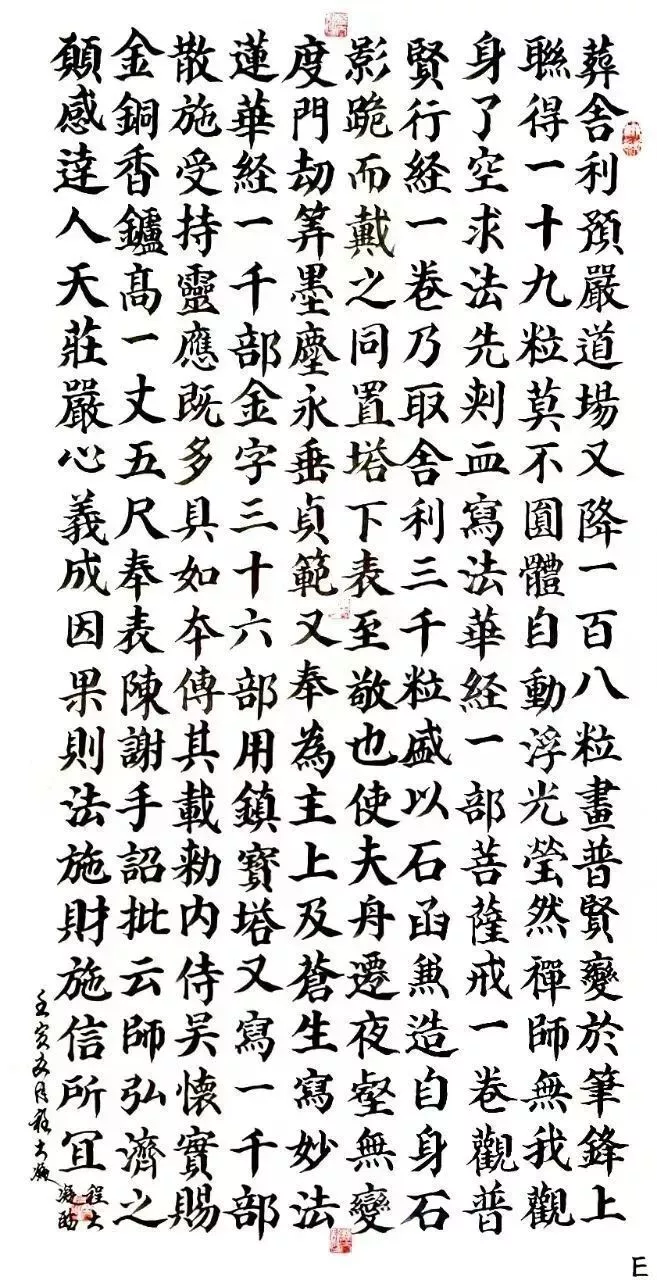 葬舍利預嚴道場又降一百八粒畫普賢變於筆鋒上
聮得一十九粒莫不圓體自動浮光瑩然禪師無我觀
身了空求法先刾血寫法華経一部菩薩戒一卷觀普
賢行経一卷乃取舍利三千粒盛以石函兼造自身石
影跪而戴之同置塔下表至敬也使夫舟遷夜壑無變
度門劫筭墨塵永垂貞範又奉為主上及蒼生寫妙法
蓮華経一千部金字三十六部用鎮寶塔又寫一千部
散施受持靈應既多具如本傳其載勑内侍吴懷實賜
金銅香鑪髙一丈五尺奉表陳謝手詔批云師弘濟之
願感達人天莊嚴心義成因果則法施財施信所冝
壬寅
E